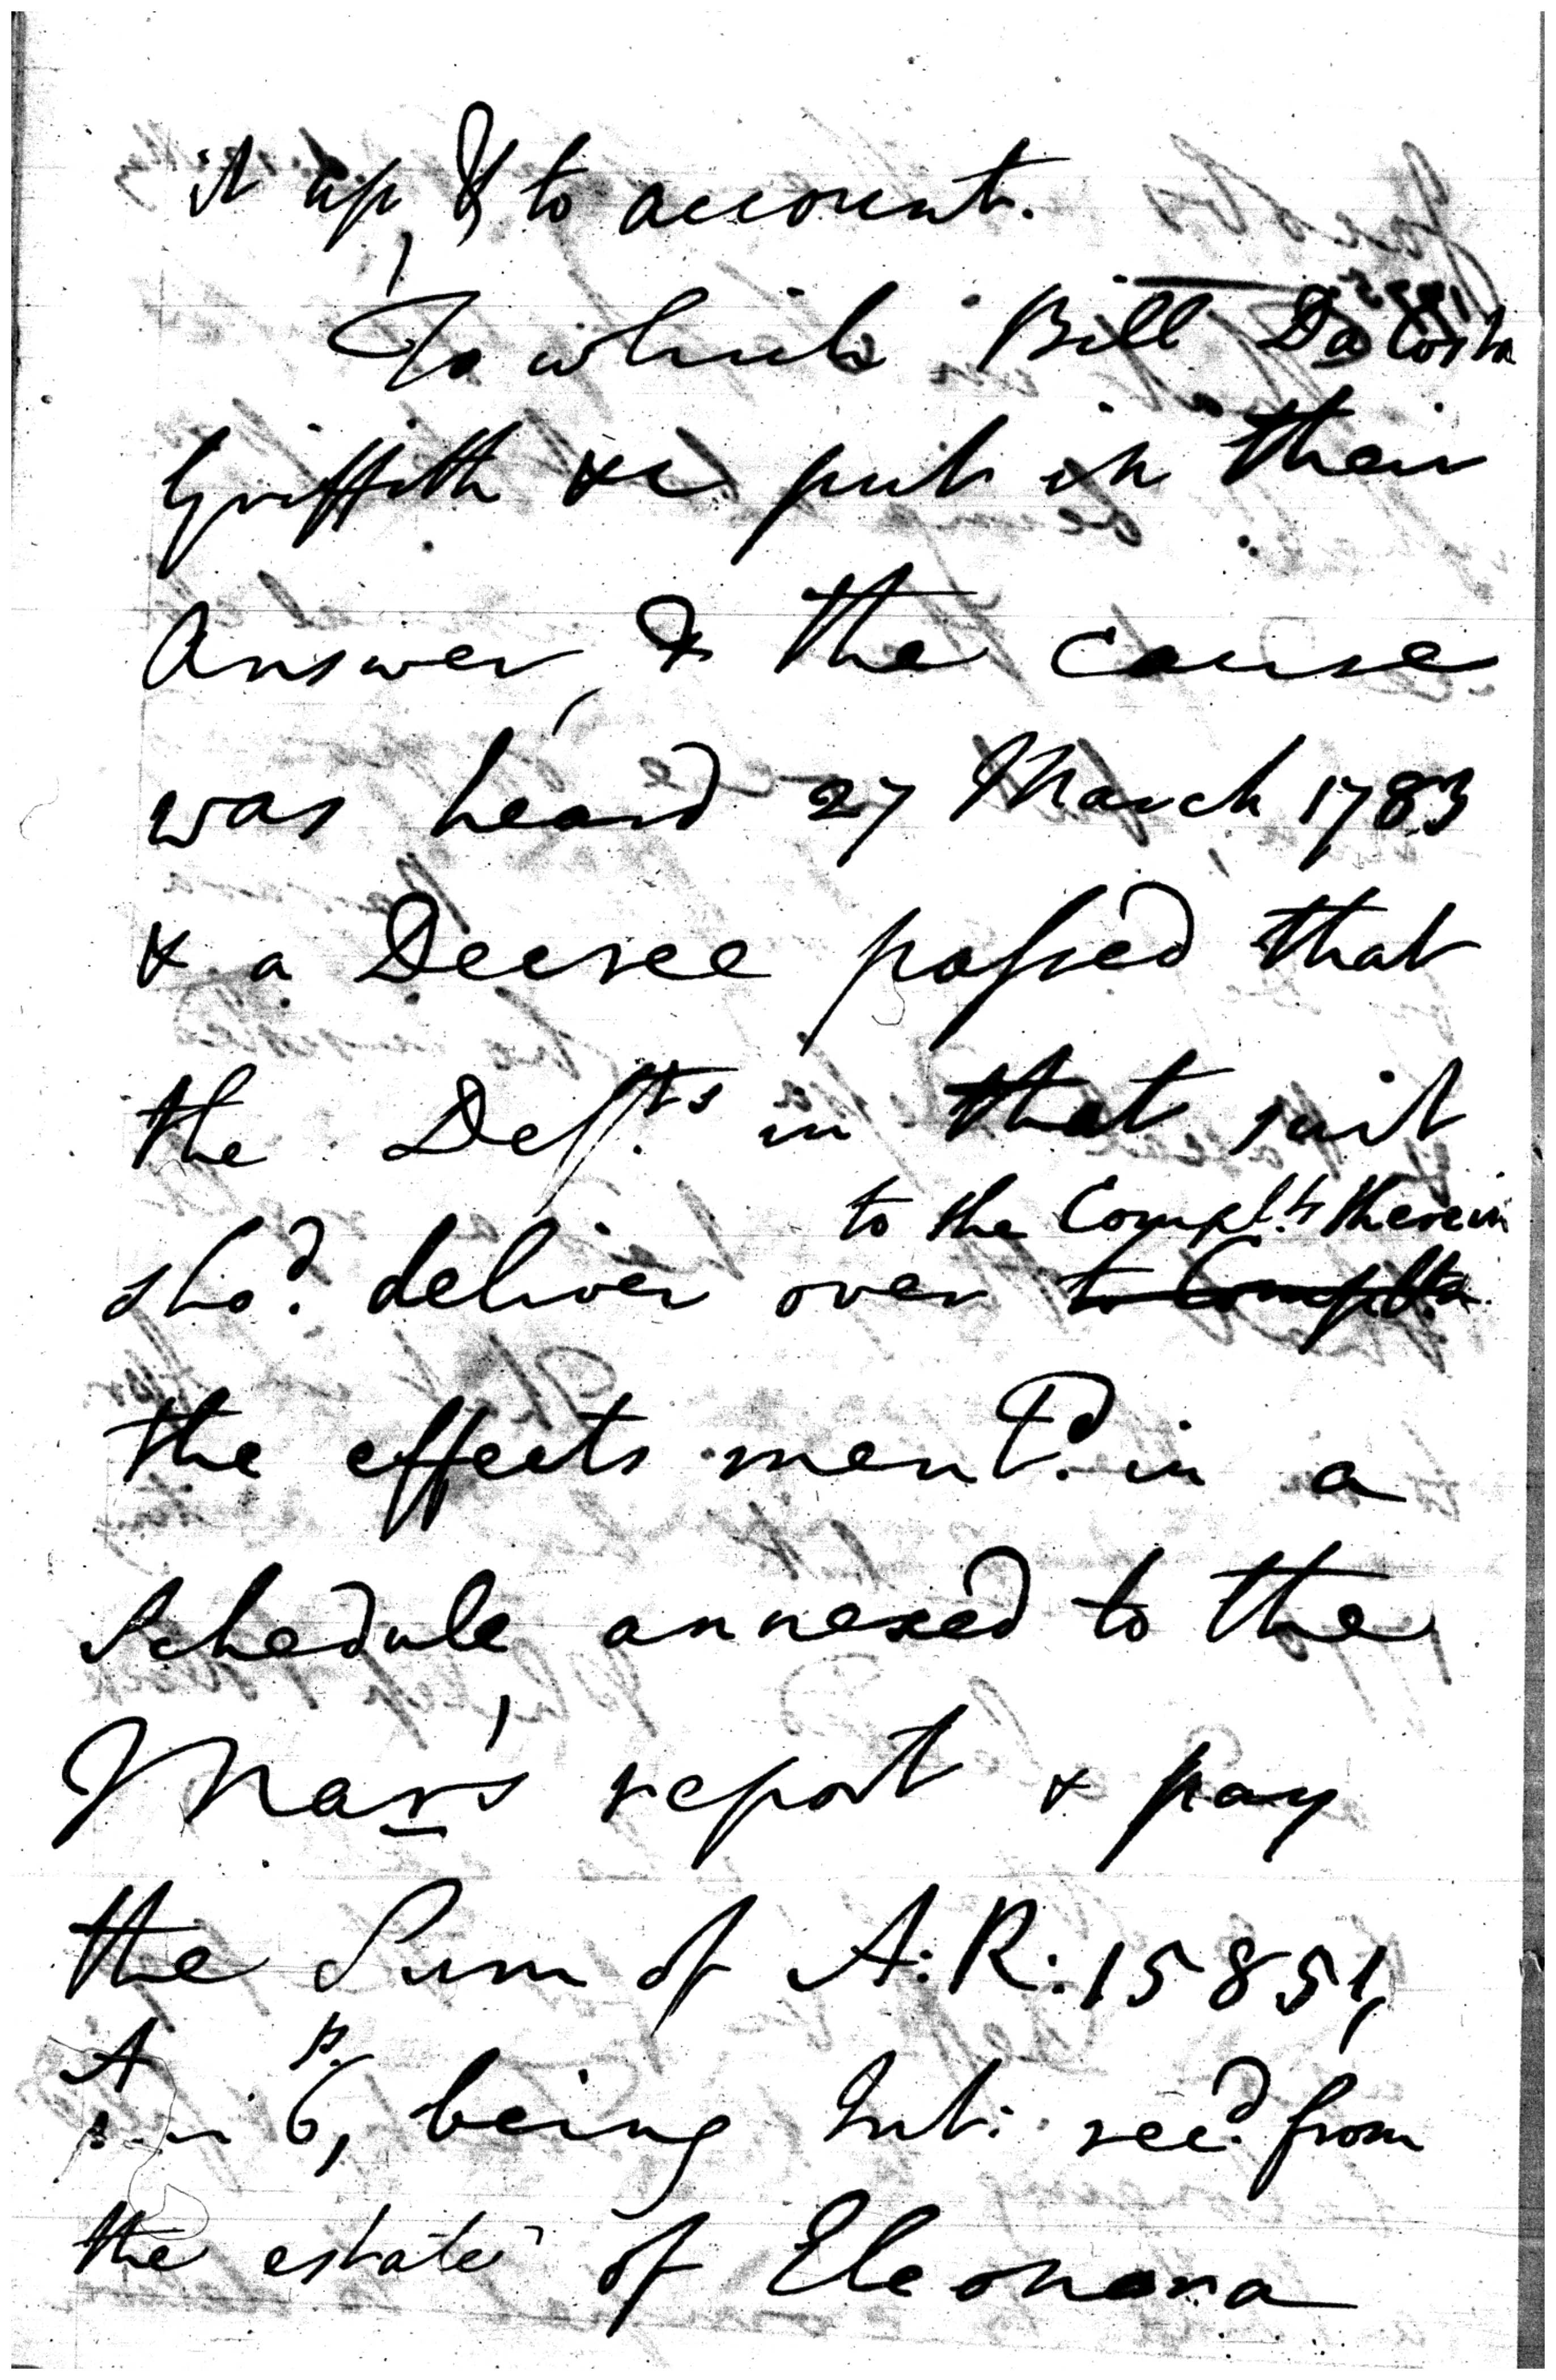 it up, & to account.
To which Bill Da Costa
Griffith &c put in their
Answer, & the cause
was heard 27 March 1783
& a Decree passed that
the Def.ts in that suit
to the Compl.ts therein
sho.d deliver over to Complts
the effects ment.d in a
Schedule, annexed to the
Mar's report & pay
the Sum of A: R: 15851,
A p. 6, being Int: rec.d from
the estate of Eleonora